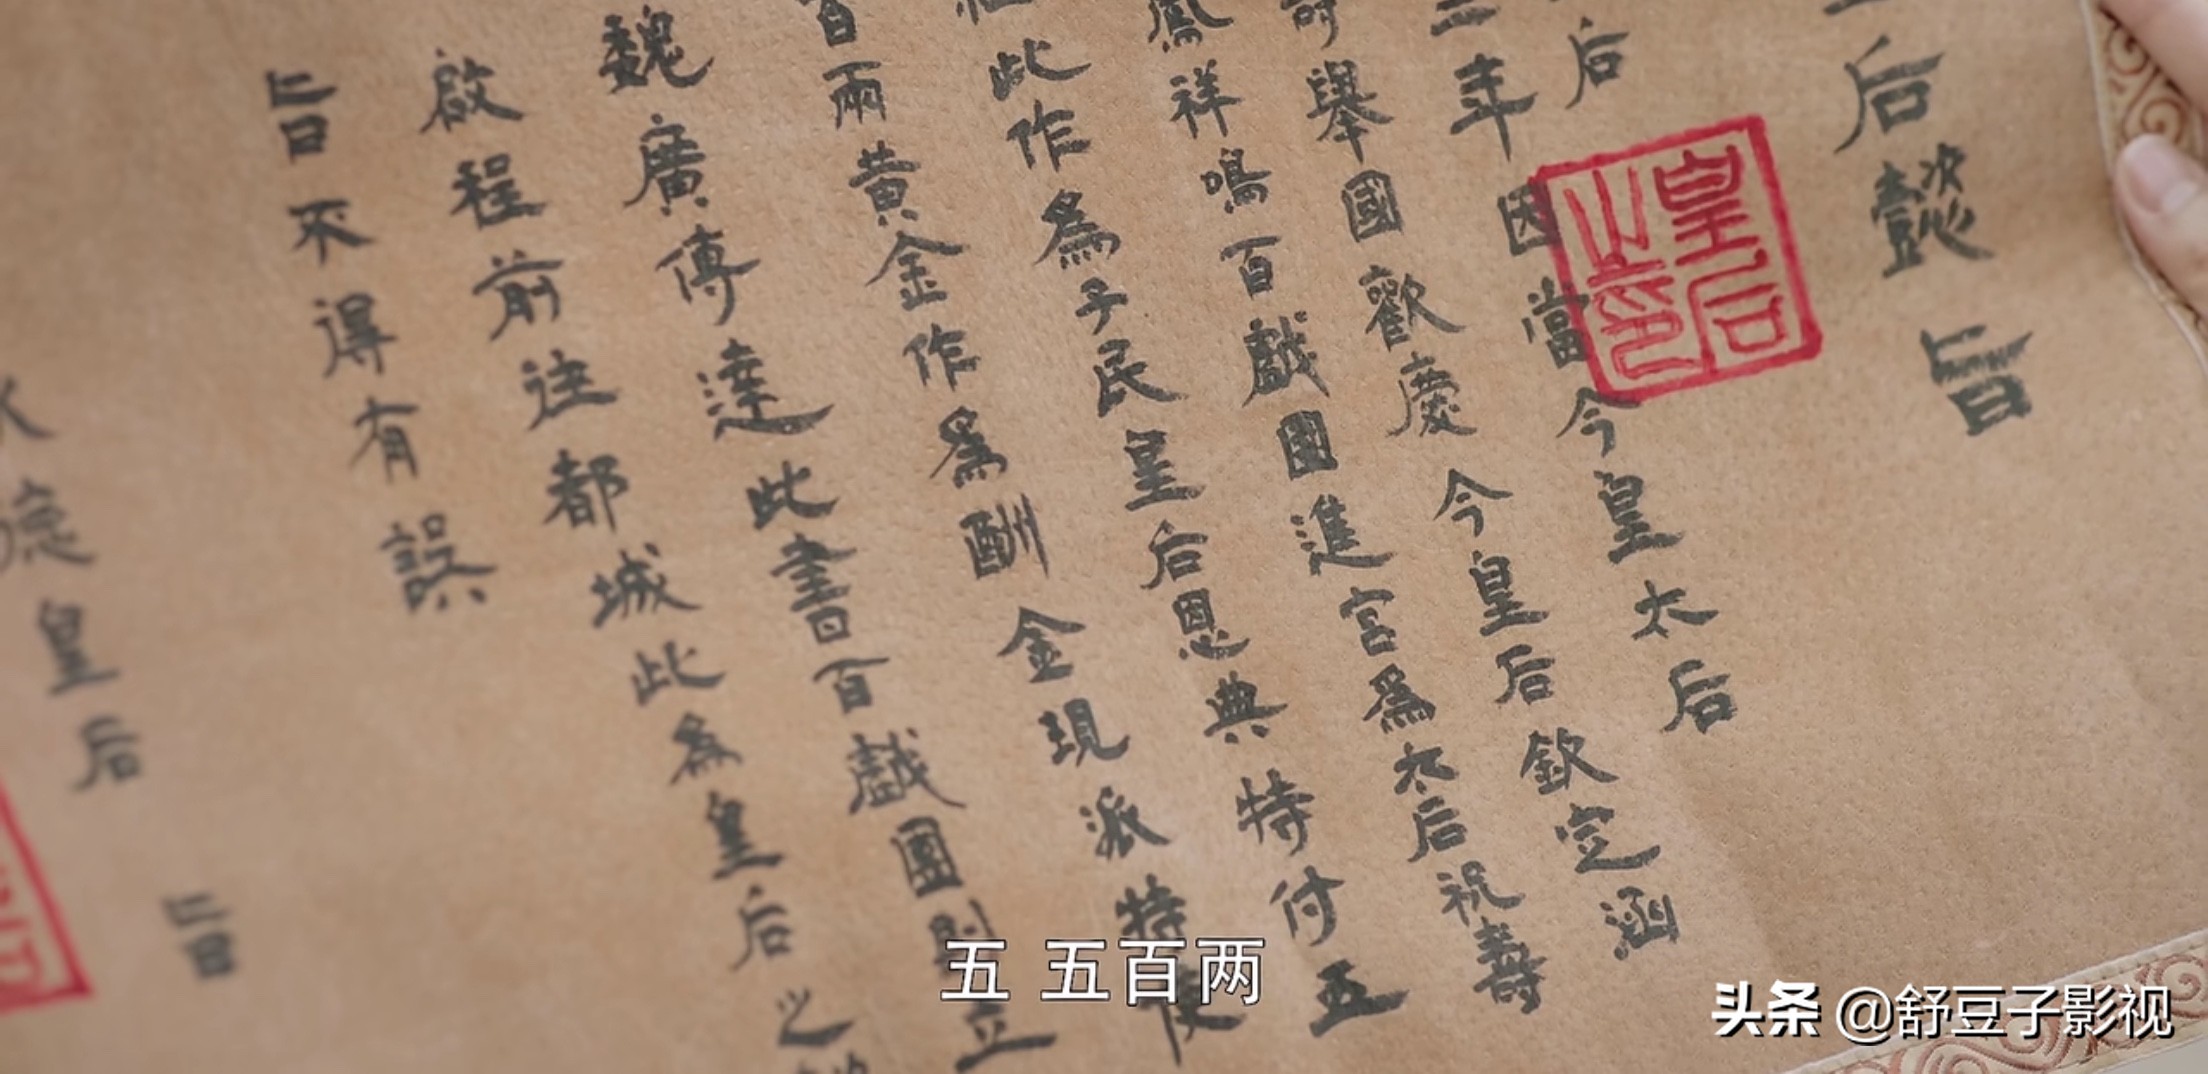 后懿旨
皇后之印
后
三年因當今皇太后
舉國歡慶今皇后欽定涵
鳳祥鳴百戲團進宮為太后祝壽
此作為子民皇后恩典特付五
百兩黃金作為酬金現派特使
魏廣傳達此書百戲團即立
啟程前往都城此為皇后之
旨不得有誤
德皇后
旨
五 五百两
头条 @舒豆子影视